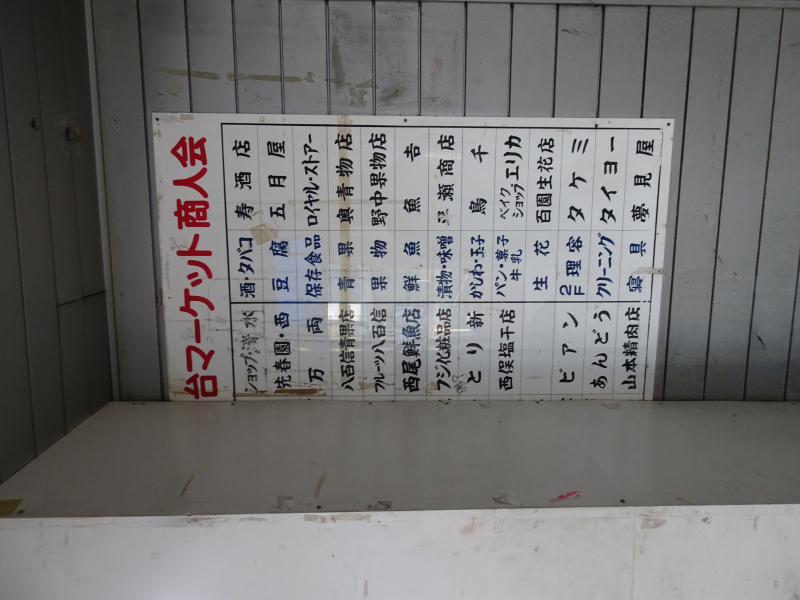 台マーケット商人会
ショップ・清水 酒・タバコ 寿酒店
春園・西 豆腐 五月屋
万両 保存食品 ロイヤル・ストアー
八百信青果店 青果 奥青物店
フルーツ八百信 果物 野中果物店
西尾鮮魚店 鮮魚 魚吉
フジ化粧品店 漬物・味噌 瀬商店
とり新 かしわ・玉子 鳥千
西俣塩干店 パン・菓子 牛乳 ベイクショップ エリカ
生花 百園生花店
ビアン 2F 理容 タケミ
あんどう クリーニング タイヨー
山本精肉店 寝具 夢見屋